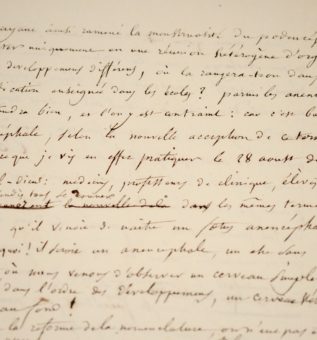 ayant ainsi ramené la monstruosité du podencéph
rer uniquement en une réunion hétérogène d'org
developpemens différens, où la rangera-t-on dans
ication enseignée dans les écoles? parmi les anencé
udra bien, et l'on y est contraint: car c'est bie
éphale, selon la nouvelle acception de ce term
ce que je vis en effet pratiquer le 28 aoust de
l-Dieu: médecins, professeurs de clinique, élèv
la nouvelle dans les mêmes term
qu'il venoit de naître un foetus anencépha
quoi! il seroit un anencéphale, un être sans
où nous venons d'observer un cerveau simple
dans l'ordre des développemens, un cerveau
au fond!
la réforme de la nomenclature, on n'eût pas